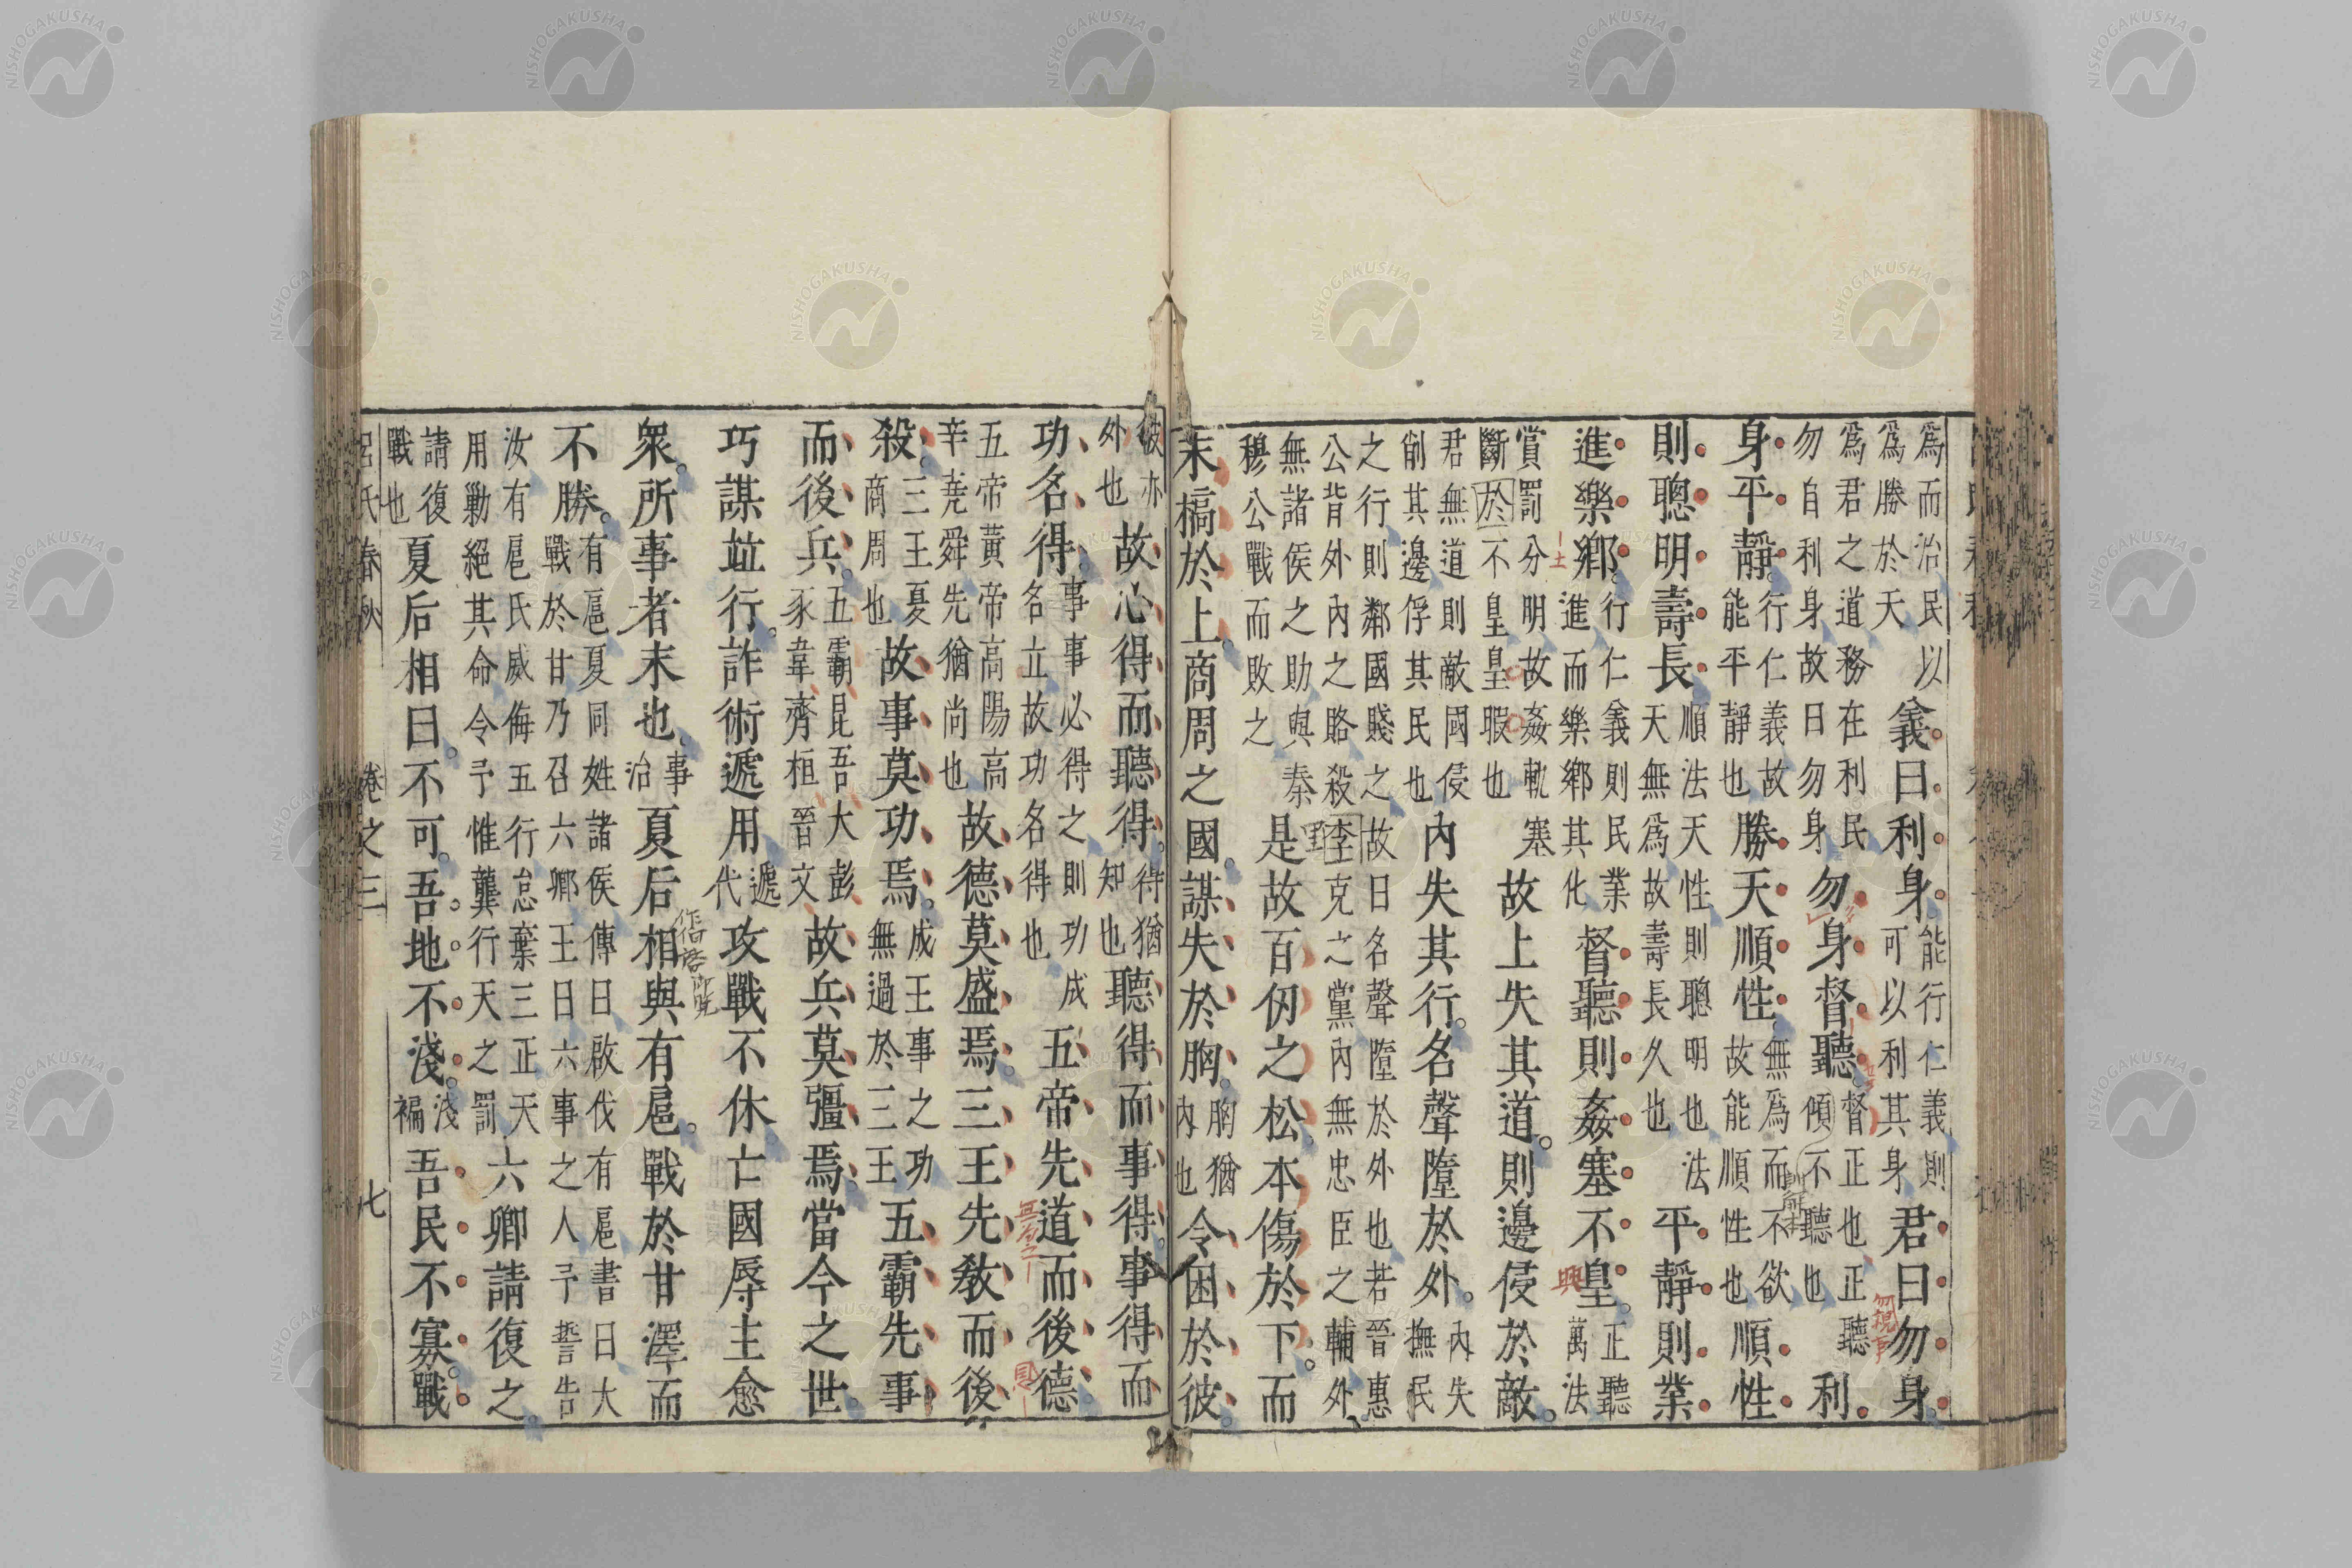 爲而治民以
爲勝於天
義曰利身
能行仁義則
可以利其身
君曰勿身
爲君之道務在利民
勿自利身故曰勿身
勿身督聽
督正也正聽
傾不聽也
利
身平靜
行仁義故
能平靜也
勝天順性
無爲而不欲
故能順性也
順性
則聰明壽長
順法天性則聰明也法
天無爲故壽長久也
平靜則業
進樂鄉
行仁義則民業
進而樂鄉其化
督聽則姦塞不皇
正聽
萬法
賞罰分明故姦軌塞
斷於不皇皇暇也
故上失其道則邊侵於敵
君無道則敵國侵
削其邊俘其民也
內失其行名聲墮於外
內失
撫民
之行則鄰國賤之故曰名聲墮於外也若晉惠
公背外內之賂殺李克之黨內無忠臣之輔外
無諸侯之助與秦
穆公戰而敗之
是故百仞之松本傷於下而
末槁於上商周之國謀失於胸
胸猶
內也
令困於彼
彼亦
外也
故心得而聽得
待猶
知也
聽得而事得事得而
功名得
事事必得之則功成
名立故功名得也
五帝先道而後德
五帝黃帝高陽高
辛堯舜先猶尚也
故德莫盛焉三王先敎而後
殺
三王夏
商周也
故事莫功焉
成王事之功
無過於三王
五霸先事
而後兵
五霸昆吾大彭
豕韋齊桓晉文
故兵莫彊焉當今之世
巧謀竝行詐術遞用
遞
代
攻戰不休亡國辱主愈
眾所事者末也
事
治
夏后相與有扈戰於甘澤而
不勝
有扈夏同姓諸侯傳曰啟伐有扈書曰大
戰於甘乃召六卿王曰六事之人予誓告
汝有扈氏威侮五行怠棄三正天
用勦絕其命令予惟龔行天之罰
六卿請復之
請復
戰也
夏后相曰不可吾地不淺
淺
褊
吾民不寡戰
呂氏春秋 卷之三 七
NISHOGAKUSHA